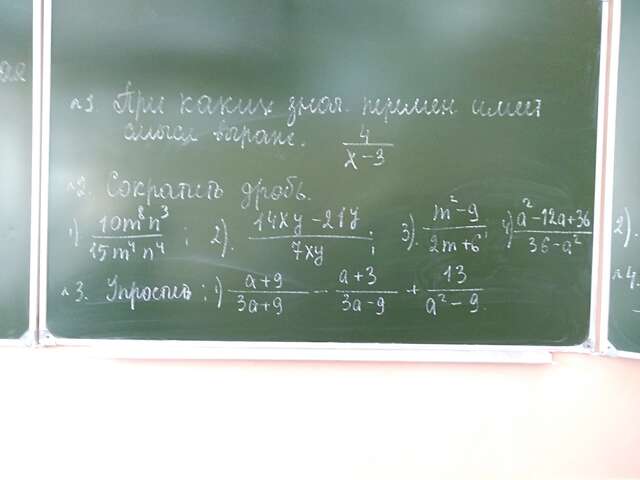 ая
№1. При каких знач. перемен. имеет
смысл выраж. 4/(x-3)
№2. Сократить дробь.
1) 10m⁸n³/15m⁴n⁴ ; 2). (14xy-21y)/7xy ; 3). (m²-9)/(2m+6) 4) (a²-12a+36)/(36-a²)
№3. Упростить: 1) (a+9)/(3a+9) - (a+3)/(3a-9) + 13/(a²-9).
2).
№4.